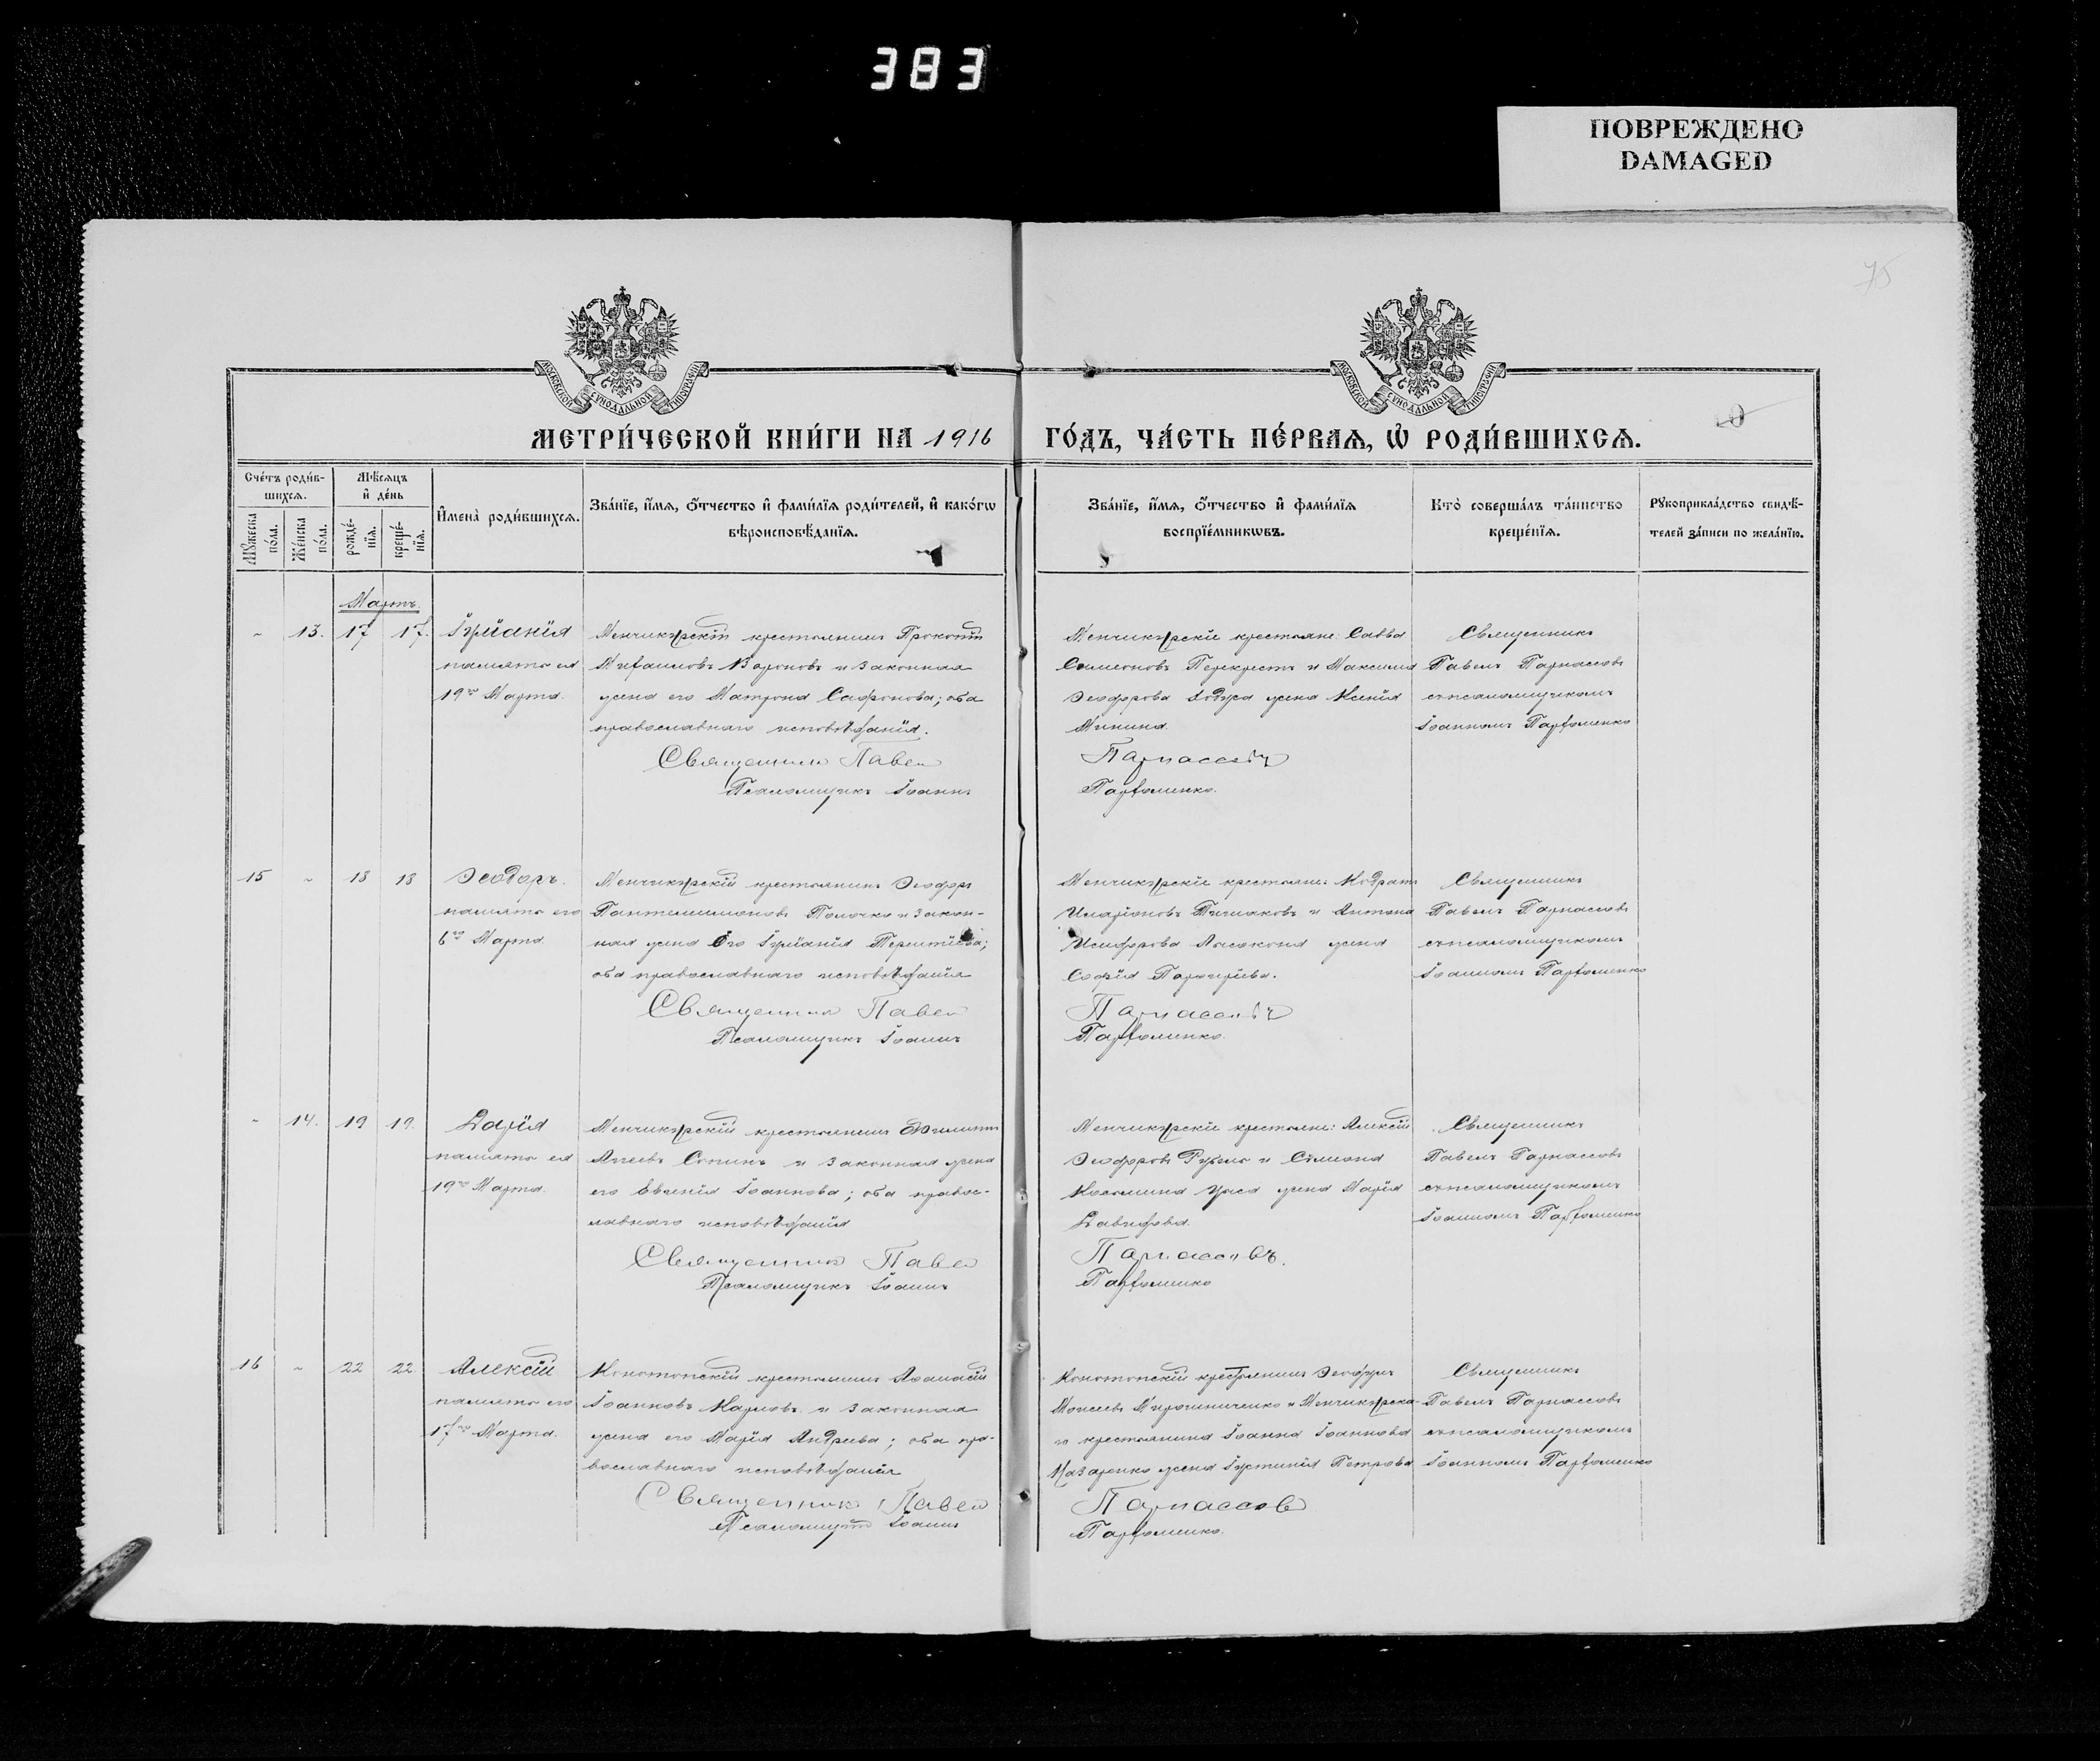 383
ПОВРЕЖДЕНО
DAMAGED
75
МОСКОВСКОЙ СѴНОДАЛЬНОЙ ТИПОГРАФІИ
МОСКОВСКОЙ СѴНОДАЛЬНОЙ ТИПОГРАФІИ
МЕТРИ́ЧЕСКОЙ КНИ́ГИ НА 1916 ГО́ДЪ, ЧА́СТЬ ПЕ́РВАѦ, Ѡ҆ РОДИ́ВШИХСѦ.
Сче́тъ роди́в-
шихсѧ.
Мꙋжеска по́ла.
Же́нска по́ла.
Мѣ́сѧцъ
и҆ де́нь
рожде́-
нїѧ.
креще́-
нїѧ.
И҆мена̀ роди́вшихсѧ.
Зва́нїе, и҆́мѧ, ѻ҆́тчество и҆ фами́лїѧ роди́телей, и҆ како́гѡ
вѣроисповѣ́данїѧ.
Зва́нїе, и҆́мѧ, ѻ҆́тчество и҆ фами́лїѧ
воспрїе́мникѡвъ.
Кто̀ соверша́лъ та́инство
креще́нїѧ.
Рꙋкоприкла́дство свидѣ́-
телей за́писи по жела́нїю.
Мартъ.
13. 17 17. Іуліанія
память ея
19го Марта.
крестьянинъ Прокопій
и законная
жена его Матрона Сафонова; оба
православнаго исповѣданія.
Священникъ Павелъ
Псаломщикъ Іоаннъ
крестьяне: Савва
Симеоновъ Перекрестъ и Максима
Ѳеодорова жена Ксенія
Минина.
Парнассовъ
Парфоменко.
Священникъ
Павелъ Парнассовъ
съ псаломщикомъ
Іоанномъ Парфоменко
15 18 18 Ѳеодоръ.
память его
6го Марта
крестьянинъ Ѳеодоръ
Пантелеимоновъ и закон-
ная жена его Іуліанія Терентіева;
оба православнаго исповѣданія
Священникъ Павелъ
Псаломщикъ Іоаннъ
крестьяне: Кодратъ
Иларіоновъ и Антона
Исидорова жена
Софія
Парнассовъ
Парфоменко.
Священникъ
Павелъ Парнассовъ
съ псаломщикомъ
Іоанномъ Парфоменко
14. 19 19. Дарія
память ея
19го Марта.
крестьянинъ Филиппъ
Сопинъ и законная жена
его Евгенія Іоаннова; оба право-
славнаго исповѣданія
Священникъ Павелъ
Псаломщикъ Іоаннъ
крестьяне: Алексій
Ѳеодоровъ и Симеона
жена Марія
Давидова.
Парнассовъ.
Парфоменко
Священникъ
Павелъ Парнассовъ
съ псаломщикомъ
Іоанномъ Парфоменко
16 22 22. Алексій
память его
17го Марта.
Конотопскій крестьянинъ Аѳанасій
Іоанновъ Карповъ и законная
жена его Марія Андреева; оба пра-
вославнаго исповѣданія
Священникъ Павелъ
Псаломщикъ Іоаннъ
Конотопскій крестьянинъ Ѳеодоръ
Моисеевъ Мирошниченко и
го крестьянина Іоанна Іоаннова
Назаренко жена Іустинія Петрова
Парнассовъ
Парфоменко.
Священникъ
Павелъ Парнассовъ
съ псаломщикомъ
Іоанномъ Парфоменко